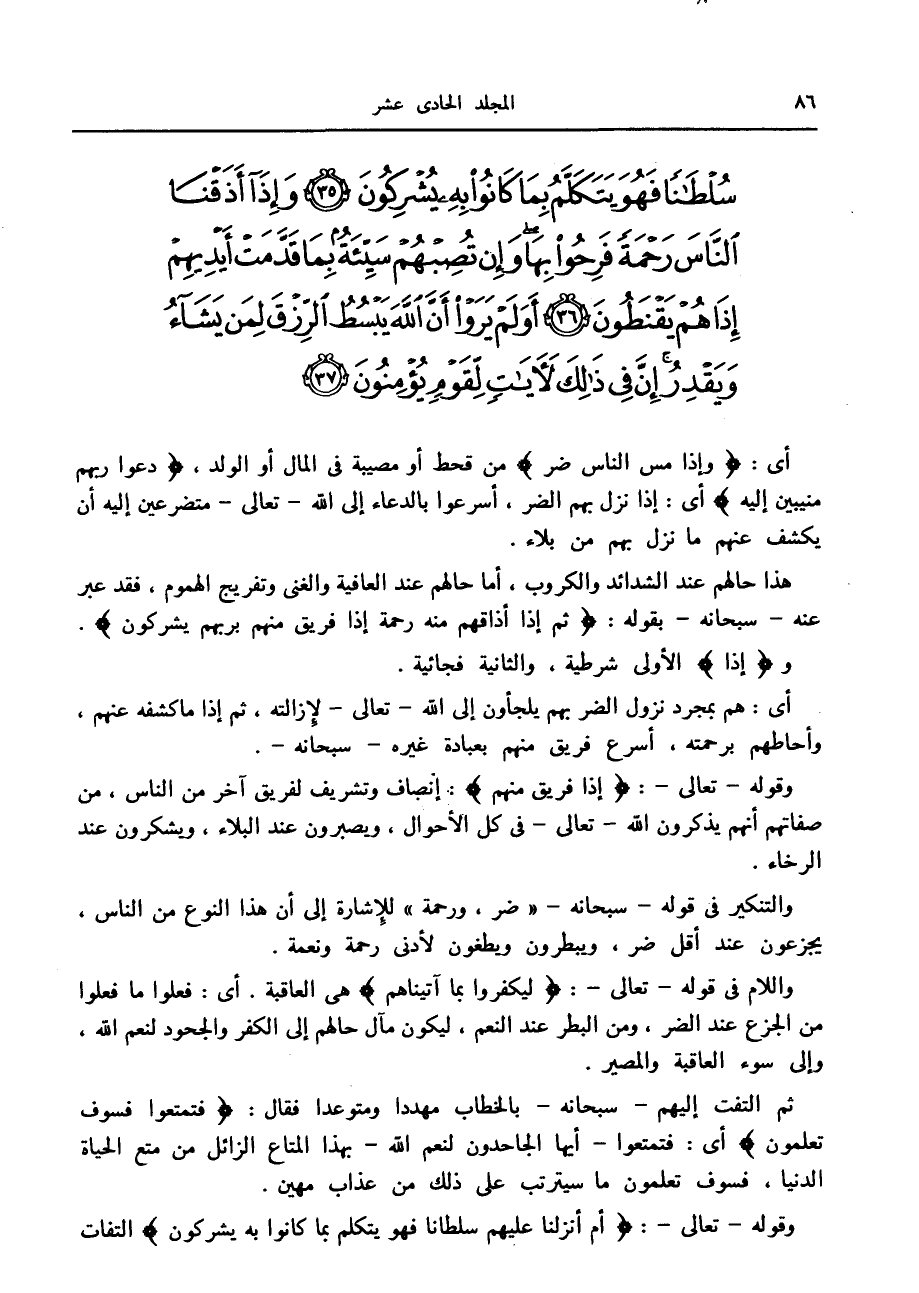 ٨٦
المجلد الحادى عشر
سُلْطَٰنًا فَهُوَ يَتَكَلَّمُ بِمَا كَانُوا۟ بِهِۦ يُشْرِكُونَ ﴿٣٥﴾ وَإِذَآ أَذَقْنَا
ٱلنَّاسَ رَحْمَةً فَرِحُوا۟ بِهَا ۖ وَإِن تُصِبْهُمْ سَيِّئَةٌۢ بِمَا قَدَّمَتْ أَيْدِيهِمْ
إِذَا هُمْ يَقْنَطُونَ ﴿٣٦﴾ أَوَلَمْ يَرَوْا۟ أَنَّ ٱللَّهَ يَبْسُطُ ٱلرِّزْقَ لِمَن يَشَآءُ
وَيَقْدِرُ ۚ إِنَّ فِى ذَٰلِكَ لَءَايَٰتٍ لِّقَوْمٍ يُؤْمِنُونَ ﴿٣٧﴾
أى : ﴿ وإذا مس الناس ضر ﴾ من قحط أو مصيبة فى المال أو الولد ، ﴿ دعوا ربهم
منيبين إليه ﴾ أى : إذا نزل بهم الضر ، أسرعوا بالدعاء إلى الله – تعالى – متضرعين إليه أن
يكشف عنهم ما نزل بهم من بلاء .
هذا حالهم عند الشدائد والكروب ، أما حالهم عند العافية والغنى وتفريج الهموم ، فقد عبر
عنه – سبحانه – بقوله : ﴿ ثم إذا أذاقهم منه رحمة إذا فريق منهم بربهم يشركون ﴾ .
و ﴿ إذا ﴾ الأولى شرطية ، والثانية فجائية .
أى : هم بمجرد نزول الضر بهم يلجأون إلى الله – تعالى – لإزالته ، ثم إذا ماكشفه عنهم ،
وأحاطهم برحمته ، أسرع فريق منهم بعبادة غيره – سبحانه – .
وقوله – تعالى – : ﴿ إذا فريق منهم ﴾ : إنصاف وتشريف لفريق آخر من الناس ، من
صفاتهم أنهم يذكرون الله – تعالى – فى كل الأحوال ، ويصبرون عند البلاء ، ويشكرون عند
الرخاء .
والتنكير فى قوله – سبحانه – « ضر ، ورحمة » للإشارة إلى أن هذا النوع من الناس ،
يجزعون عند أقل ضر ، ويبطرون ويطغون لأدنى رحمة ونعمة .
واللام فى قوله – تعالى – : ﴿ ليكفروا بما آتيناهم ﴾ هى العاقبة . أى : فعلوا ما فعلوا
من الجزع عند الضر ، ومن البطر عند النعم ، ليكون مآل حالهم إلى الكفر والجحود لنعم الله ،
وإلى سوء العاقبة والمصير .
ثم التفت إليهم – سبحانه – بالخطاب مهددا ومتوعدا فقال : ﴿ فتمتعوا فسوف
تعلمون ﴾ أى : فتمتعوا – أيها الجاحدون لنعم الله – بهذا المتاع الزائل من متع الحياة
الدنيا ، فسوف تعلمون ما سيترتب على ذلك من عذاب مهين .
وقوله – تعالى – : ﴿ أم أنزلنا عليهم سلطانا فهو يتكلم بما كانوا به يشركون ﴾ التفات